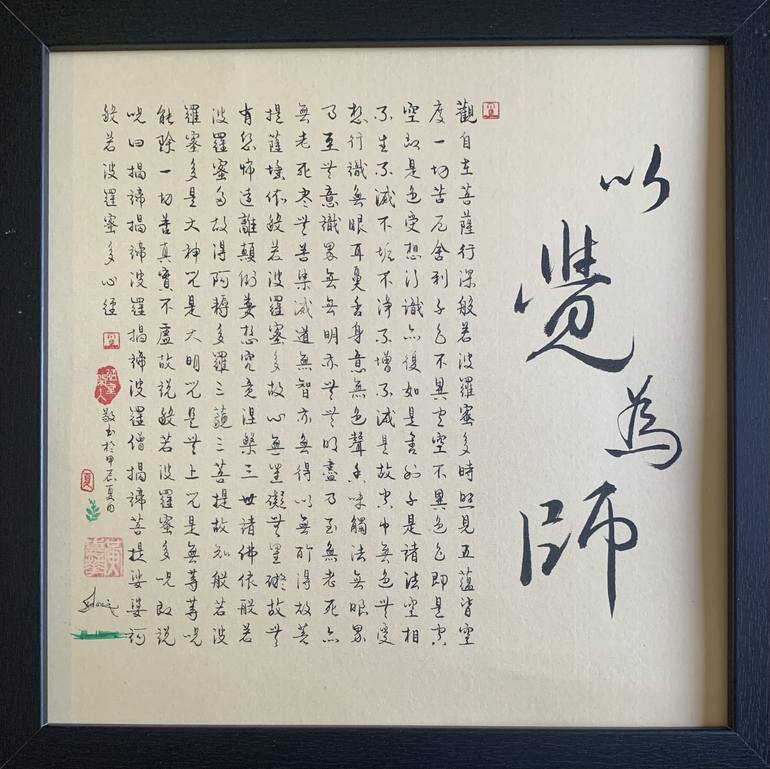 以覺為師
觀自在菩薩行深般若波羅蜜多時照見五蘊皆空
度一切苦厄舍利子色不異空空不異色色即是空
空即是色受想行識亦復如是舍利子是諸法空相
不生不滅不垢不淨不增不減是故空中無色無受
想行識無眼耳鼻舌身意無色聲香味觸法無眼界
乃至無意識界無無明亦無無明盡乃至無老死亦
無老死盡無苦集滅道無智亦無得以無所得故菩
提薩埵依般若波羅蜜多故心無罣礙無罣礙故無
有恐怖遠離顛倒夢想究竟涅槃三世諸佛依般若
波羅蜜多故得阿耨多羅三藐三菩提故知般若波
羅蜜多是大神咒是大明咒是無上咒是無等等咒
能除一切苦真實不虛故說般若波羅蜜多咒即說
咒曰揭諦揭諦波羅揭諦波羅僧揭諦菩提娑婆訶
般若波羅蜜多心經
敬書於甲辰夏月